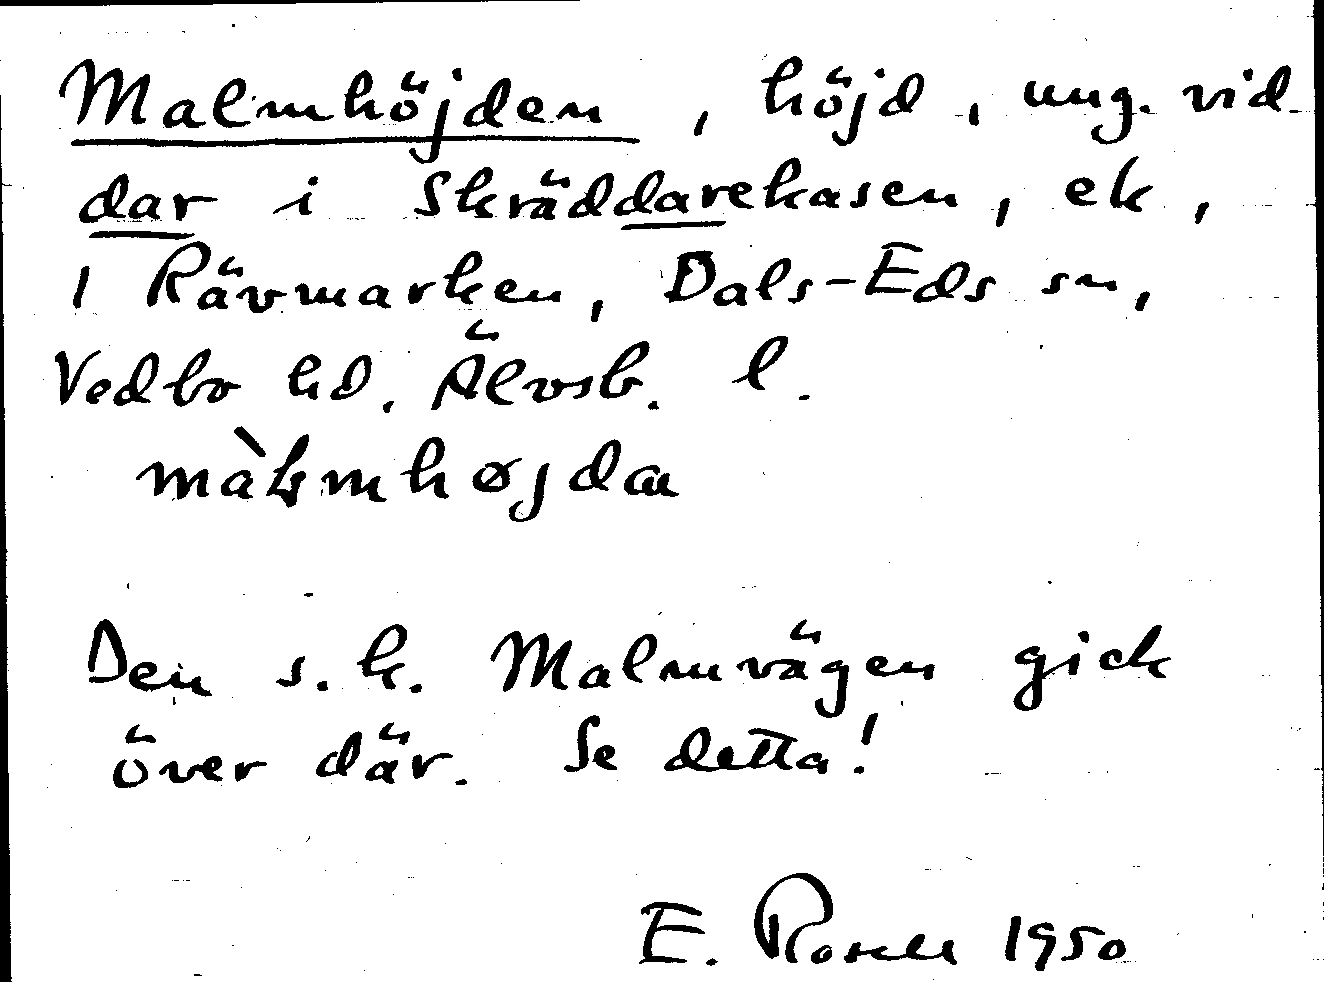 Malmhöjden, höjd, ung. vid
dar i Skräddarekasen, ek,
i Rävmarken, Dals-Eds sn,
Vedbo hd. Älvsb. l.
màlmhøjdæn
Den s.k. Malmvägen gick
över där. Se detta!
E. Rosell 1950